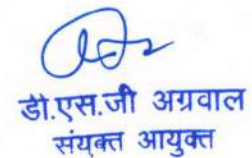 डी.एस.जी अग्रवाल
संयुक्त आयुक्त